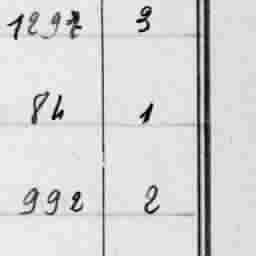 1297 3
84 1
992 2